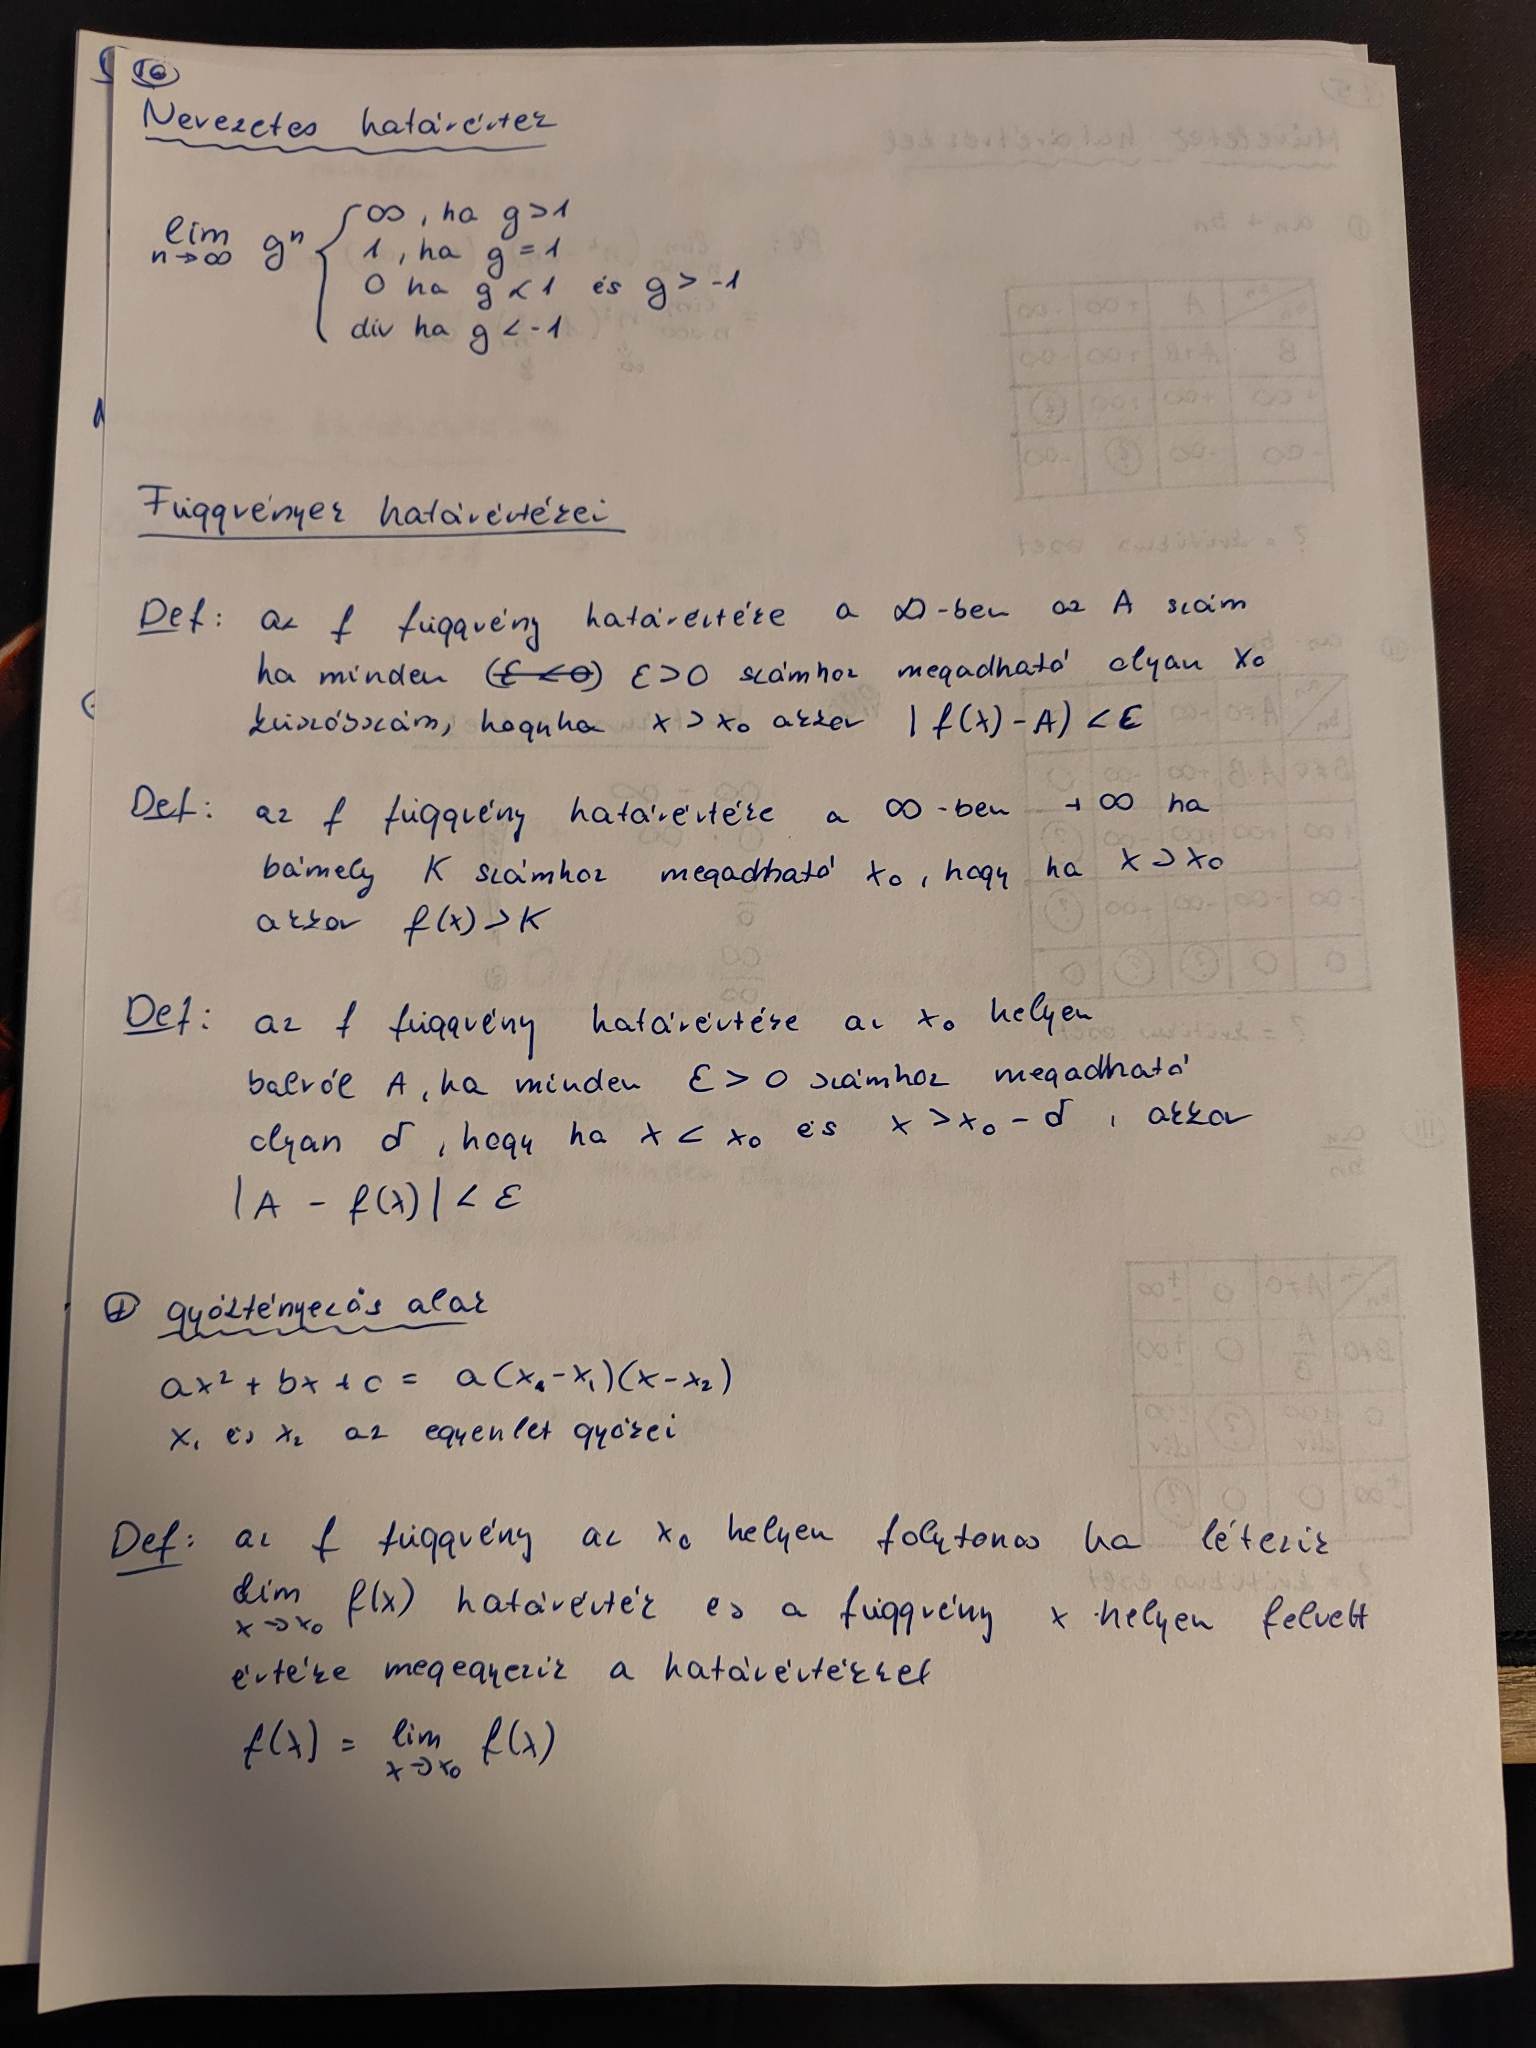 16
Nevezetes határérték
lim n→∞ gⁿ { ∞, ha g>1
1, ha g=1
0 ha g<1 és g>-1
div ha g<-1
Függvények határértékei
Def: az f függvény határértéke a ∞-ben az A szám
ha minden (ε<0) ε>0 számhoz megadható olyan x₀
küszöbszám, hogyha x>x₀ akkor |f(x)-A)<ε
Def: az f függvény határértéke a ∞-ben +∞ ha
bámely K számhoz megadható x₀, hogy ha x>x₀
akkor f(x)>K
Def: az f függvény határértéke az x₀ helyen
balról A, ha minden ε>0 számhoz megadható
olyan δ, hogy ha x<x₀ és x>x₀-δ, akkor
|A - f(x)|<ε
gyöktényezős alak
ax²+bx+c = a(x-x₁)(x-x₂)
x₁ és x₂ az egyenlet gyökei
Def: az f függvény az x₀ helyen folytonos ha létezik
lim x→x₀ f(x) határérték és a függvény x helyen felvett
értéke megegyezik a határértékkel
f(x) = lim x→x₀ f(x)